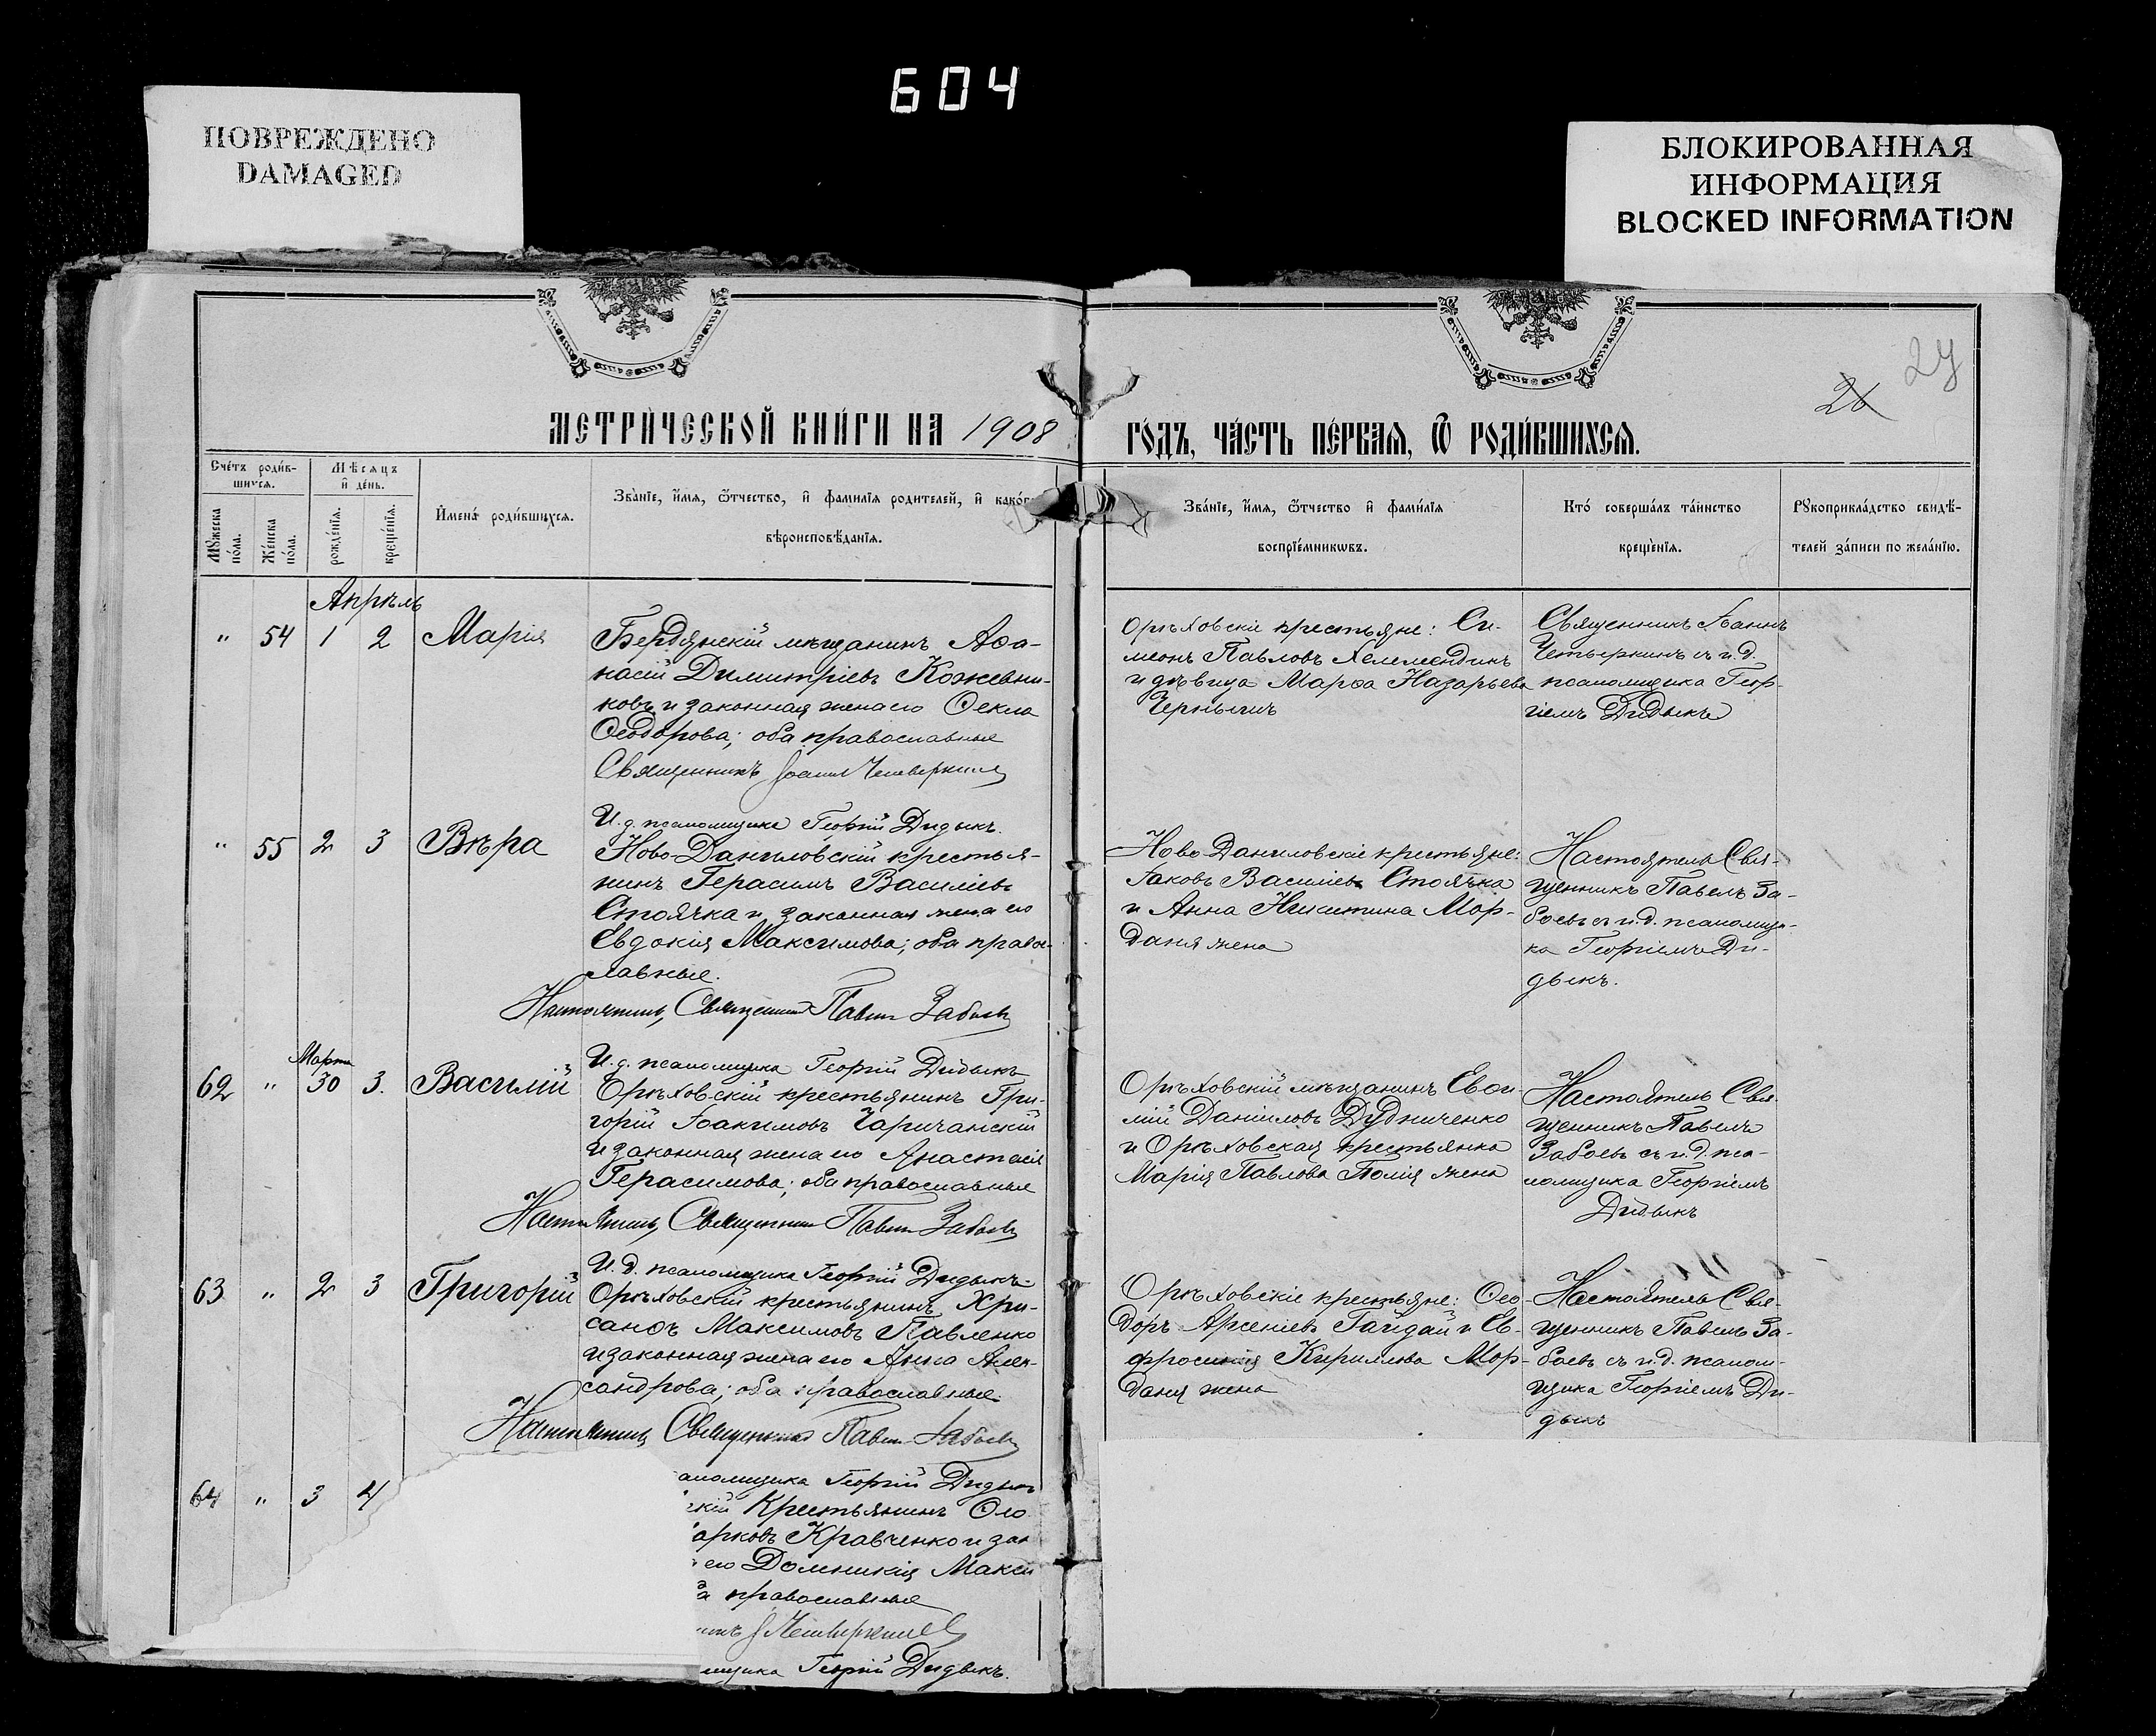 604
ПОВРЕЖДЕНО
DAMAGED
БЛОКИРОВАННАЯ
ИНФОРМАЦИЯ
BLOCKED INFORMATION
26
27
МЕТРИ́ЧЕСКОЙ КНИ́ГИ НА 1908
ГО́ДЪ, ЧА́СТЬ ПЕ́РВАѦ, Ѿ РОДИ́ВШИХСѦ.
Счётъ роди́в-
шихсѧ.
Мꙋ́жеска по́ла.
Же́нска по́ла.
Мѣ́сѧцъ
и҆ де́нь.
рожде́нїѧ.
креще́нїѧ.
И҆мена̀ роди́вшихсѧ.
Зва́нїе, и҆́мѧ, ѻ҆́тчество, и҆ фами́лїѧ роди́телей, и҆ како́гѡ
вѣроисповѣ́данїѧ.
Зва́нїе, и҆́мѧ, ѻ҆́тчество и҆ фами́лїѧ
воспрїе́мникѡвъ.
Кто́ соверша́лъ та́инство
креще́нїѧ.
Рꙋкоприкла́дство свидѣ́-
телей за́писи по жела́нїю.
Апрѣль
" 54 1 2 Марія
Бердянскій мѣщанинъ Аѳа-
насій Димитріевъ Кожевни-
ковъ и законная жена его Ѳекла
Ѳеодорова; оба православные
Священникъ Іоаннъ Четверкинъ
И. д. псаломщика Георгій Дидыкъ.
Орѣховскіе крестьяне: Си-
меонъ Павловъ
и дѣвица Марѳа Назарьева
Священникъ Іоаннъ
Четверкинъ съ и. д.
псаломщика Геор-
гіемъ Дидыкъ
" 55 2 3 Вѣра
Ново-Даниловскій крестья-
нинъ Герасимъ Василіевъ
Стоячка и законная жена его
Евдокія Максимова; оба право-
славные.
Настоятель, Священникъ Павелъ Забоевъ
И. д. псаломщика Георгій Дидыкъ
Ново Даниловскіе крестьяне:
Іаковъ Василіевъ Стоячка
и Анна Никитина Мор-
даня жена
Настоятель Свя-
щенникъ Павелъ За-
боевъ съ и. д. псаломщи-
ка Георгіемъ Ди-
дыкъ.
62 " Марта 30 3. Василій
Орѣховскій крестьянинъ Гри-
горій Іоакимовъ Чаричанскій
и законная жена его Анастасія
Герасимова; оба православные
Настоятель, Священникъ Павелъ Забоевъ
И. д. псаломщика Георгій Дидыкъ
Орѣховскій мѣщанинъ Евѳи-
мій Даніиловъ Дудниченко
и Орѣховская крестьянка
Марія Павлова жена
Настоятель Свя-
щенникъ Павелъ
Забоевъ съ и. д. пса-
ломщика Георгіемъ
Дидыкъ
63 " 2 3 Григорій
Орѣховскій крестьянинъ Хри-
санѳъ Максимовъ Павленко
и законная жена его Анна Алек-
сандрова; оба православные.
Настоятель Священникъ Павелъ Забоевъ
Орѣховскіе крестьяне: Ѳео-
доръ Арсеніевъ Гайдай и Ев-
фросинія Кириллова Мор-
даня жена
Настоятель Свя-
щенникъ Павелъ За-
боевъ съ и. д. псалом-
щика Георгіемъ Ди-
дыкъ
64 " 3 4
аломщика Георгій Дидыкъ
скій Крестьянинъ Ѳео
арковъ Кравченко и зак
его Домникія Макси
а православные
никъ І Четверкинъ
мщика Георгій Дидыкъ.